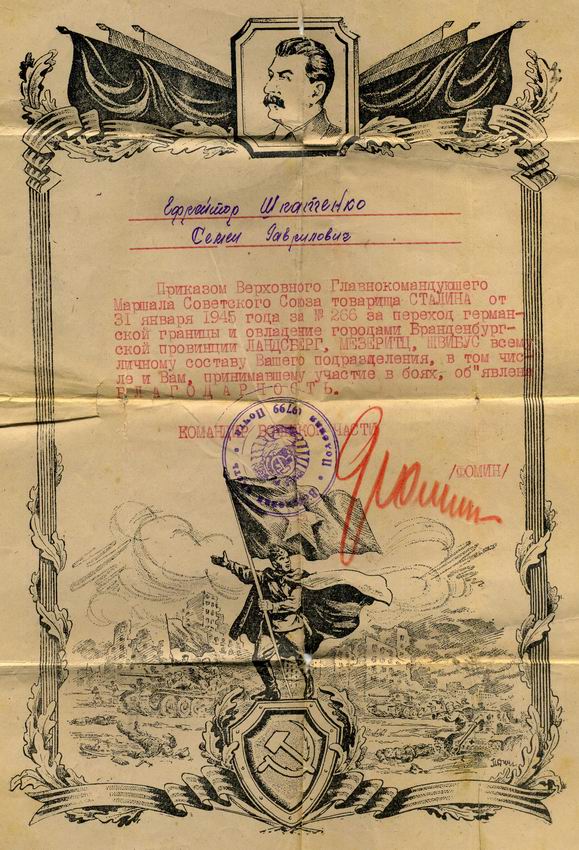 Ефрейтор Шкатенко
Семен Гаврилович
Приказом Верховного Главнокомандующего
Маршала Советского Союза товарища СТАЛИНА от
31 января 1945 года за № 266 за переход герман-
ской границы и овладение городами Бранденбург-
ской провинции ЛАНДСБЕРГ, МЕЗЕРИТЦ, ШВИБУС всему
личному составу Вашего подразделения, в том чис-
ле и Вам, принимавшему участие в боях, об"явлена
БЛАГОДАРНОСТЬ.
КОМАНДИР ВОЙСКОВОЙ ЧАСТИ
/ФОМИН/
Полевая Почта